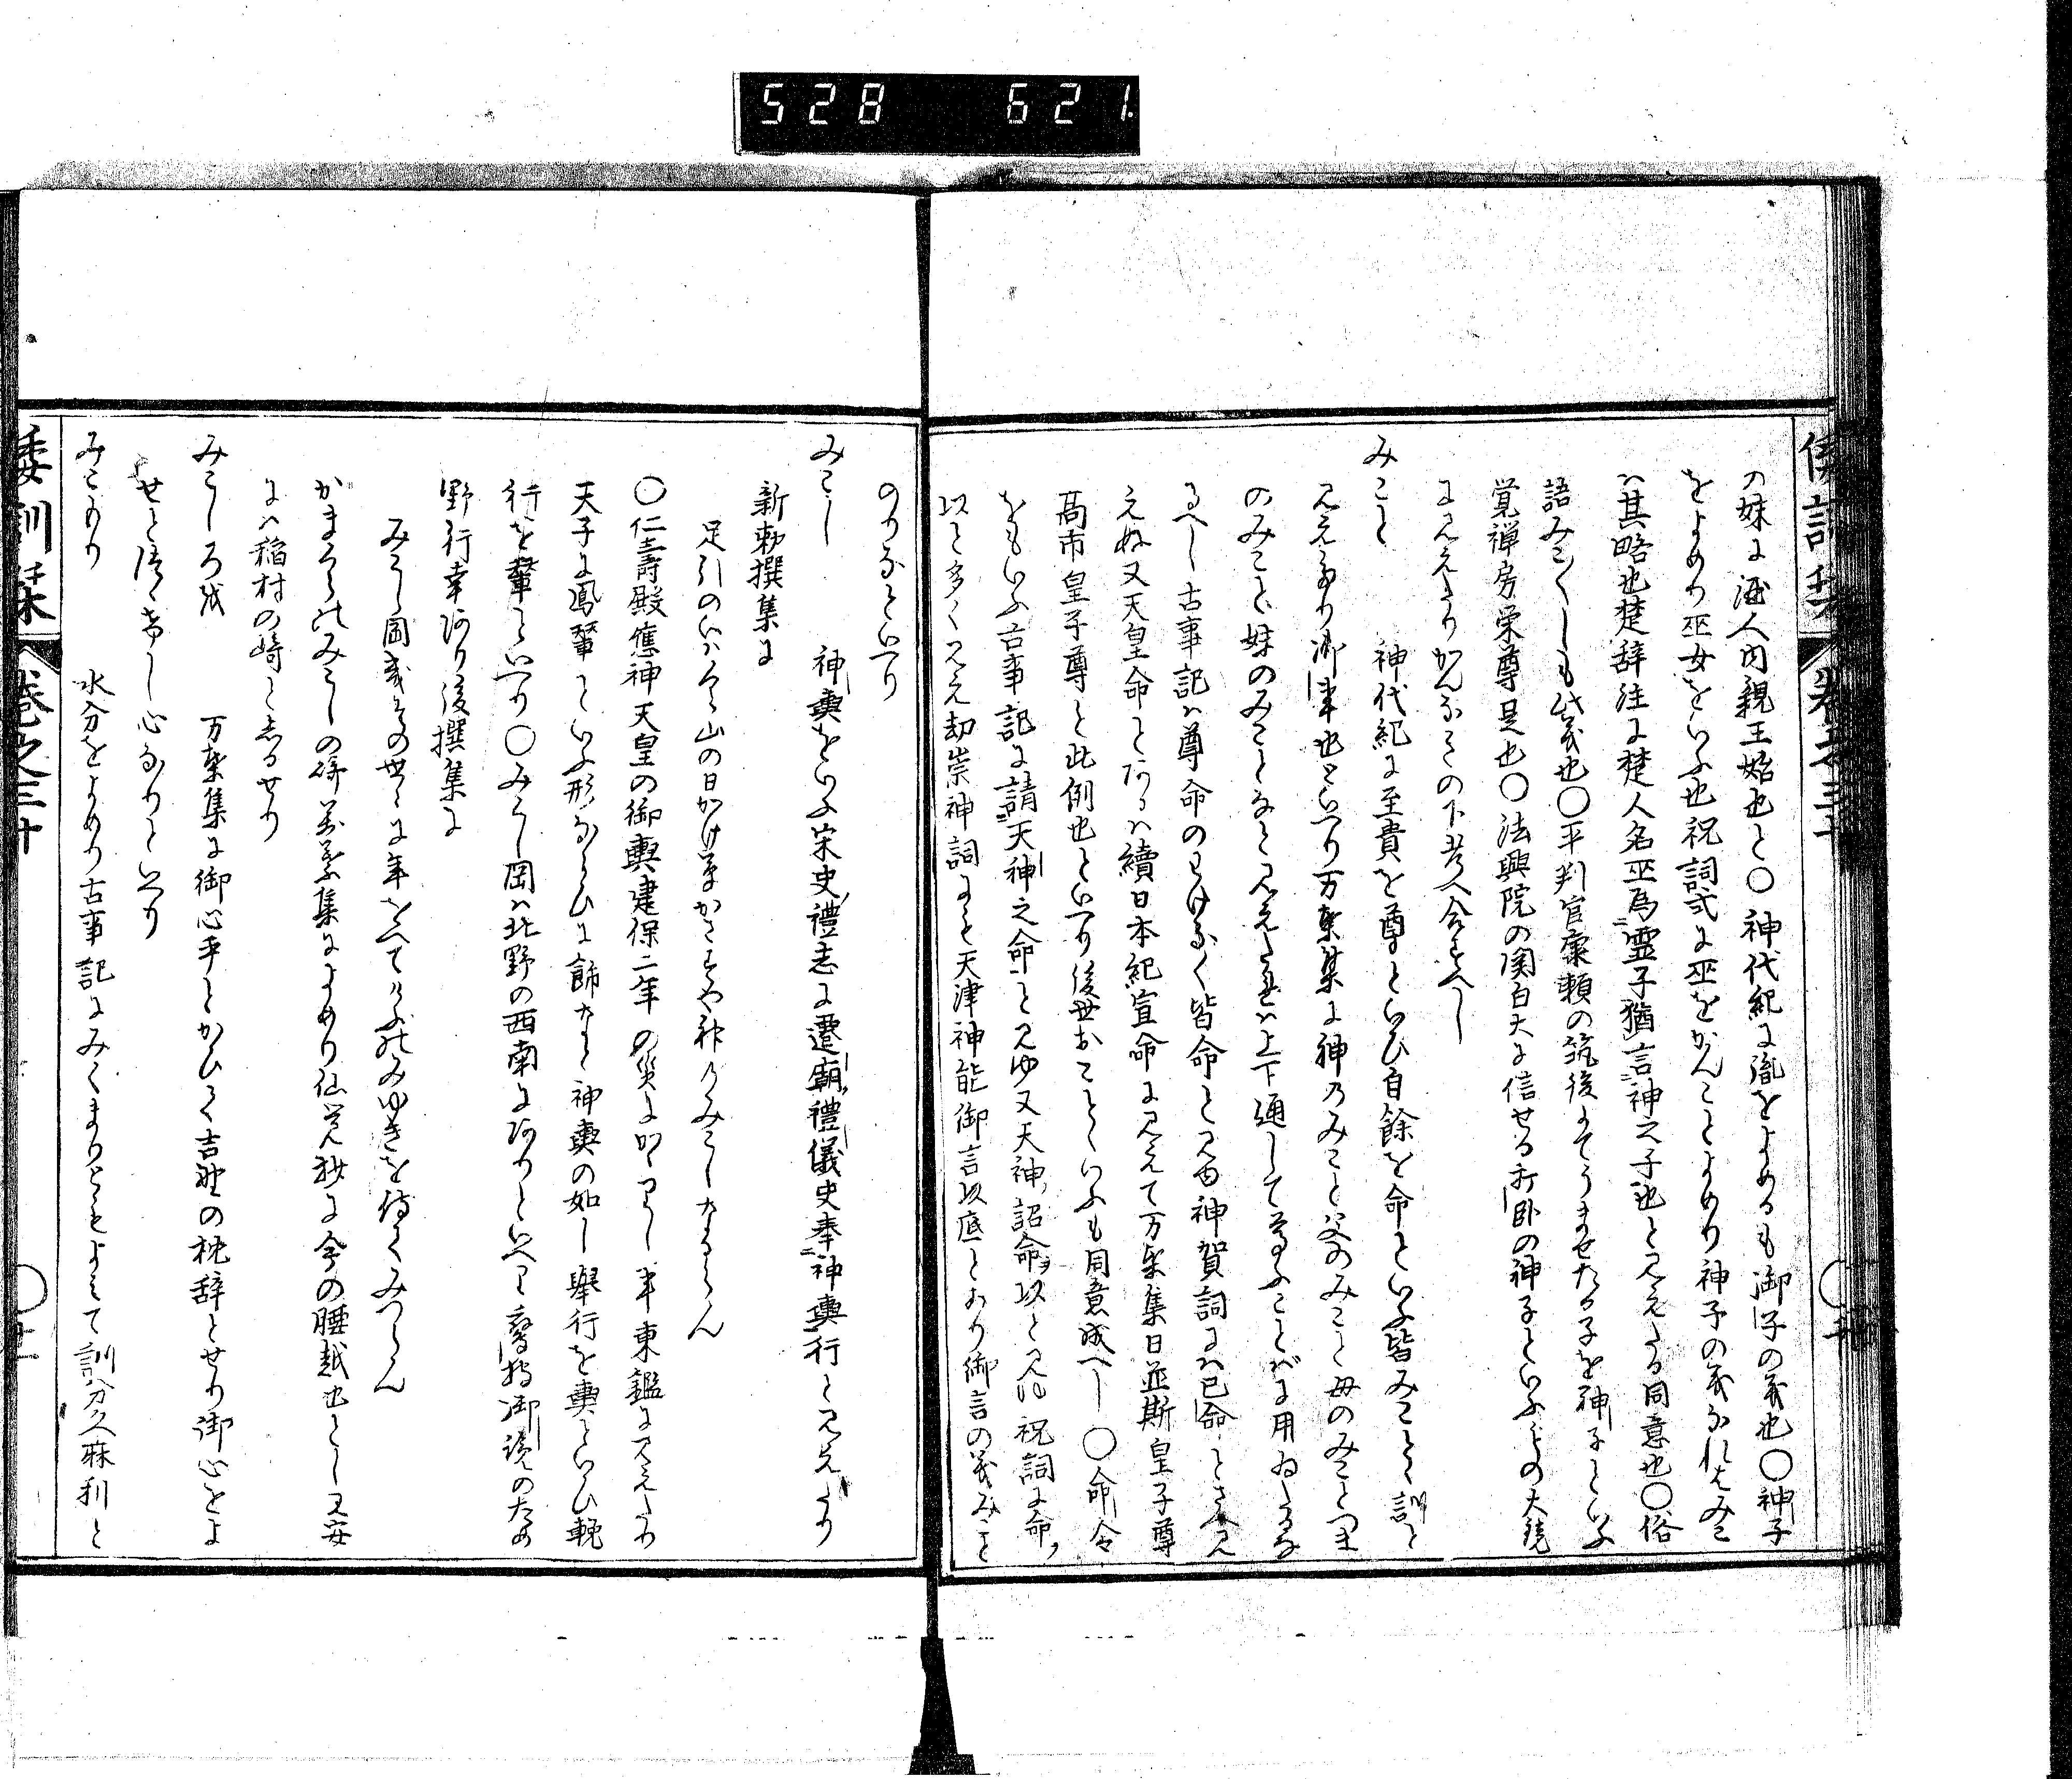 528 621
倭訓栞 巻之三十
の妹に酒人内親王始也と〇神代紀に胤をよめるも御子の義也〇神子
をよめり巫女をいふ也祝詞式に巫をかんことよめり神子の義なれはみこ
ハ其略也楚辞注に楚人名巫為霊子猶言神之子也と見えたる同意也〇俗
語みこくしも此義也〇平判官康頼の筑後にてうませたる子を神子といふ
覚禅房栄尊是也〇法興院の関白大に信せる打臥の神子といふもの大鏡
に見えたりかんなきの下考へ合すへし
みこと 神代紀に至貴を尊といひ自餘を命といふ皆みことゝ訓と
見えたり御事也といへり万葉集に神乃みこと父のみこと母のみことつま
のみこと妹のみことなと見えたれハ上下通して尊ふことばに用ゐたるな
るへし古事記ハ尊命のわけなく皆命と見ゆ神賀詞にハ己命とさへ見
えぬ又天皇命とあるハ續日本紀宣命に見えて万葉集日並斯皇子尊
高市皇子尊と此例也といへり後世おことゝいふも同意成へし〇命令
をもいふ古事記に請天神之命と見ゆ又天神詔命以と見ゆ祝詞に命
以と多く見え却崇神詞にも天津神能御言以底とあり御言の義みこと
のりなといへり
みこし 神輿をいふ宋史禮志に遷廟禮儀史奉神輿行と見えたり
新勅撰集に
足引のいはくら山の日かけ草かさすや神のみこしなるらん
〇仁壽殿應神天皇の御輿建保二年の災にかゝりし事東鑑に見えたり
天子に鳳輦といふ形ならひに飾なと神輿の如し舉行を輿といひ輓
行を輦といへり〇みこし岡ハ北野の西南にありといへり鷹狩御覧のため
野行幸あり後撰集に
みこし岡幾その世ゝに年をへてけふのみゆきを待てみつらん
かまくらのみこしの崎万葉集によめり仙覚抄に今の腰越也とし又安
にハ稲村の崎としるせり
みこゝろを 万葉集に御心乎とかひて吉野の枕辞とせり御心をよ
せと清しき心なりといへり
みこもり 水分をよめり古事記にみくまりともよみて訓分久麻利と
倭訓栞 巻之三十